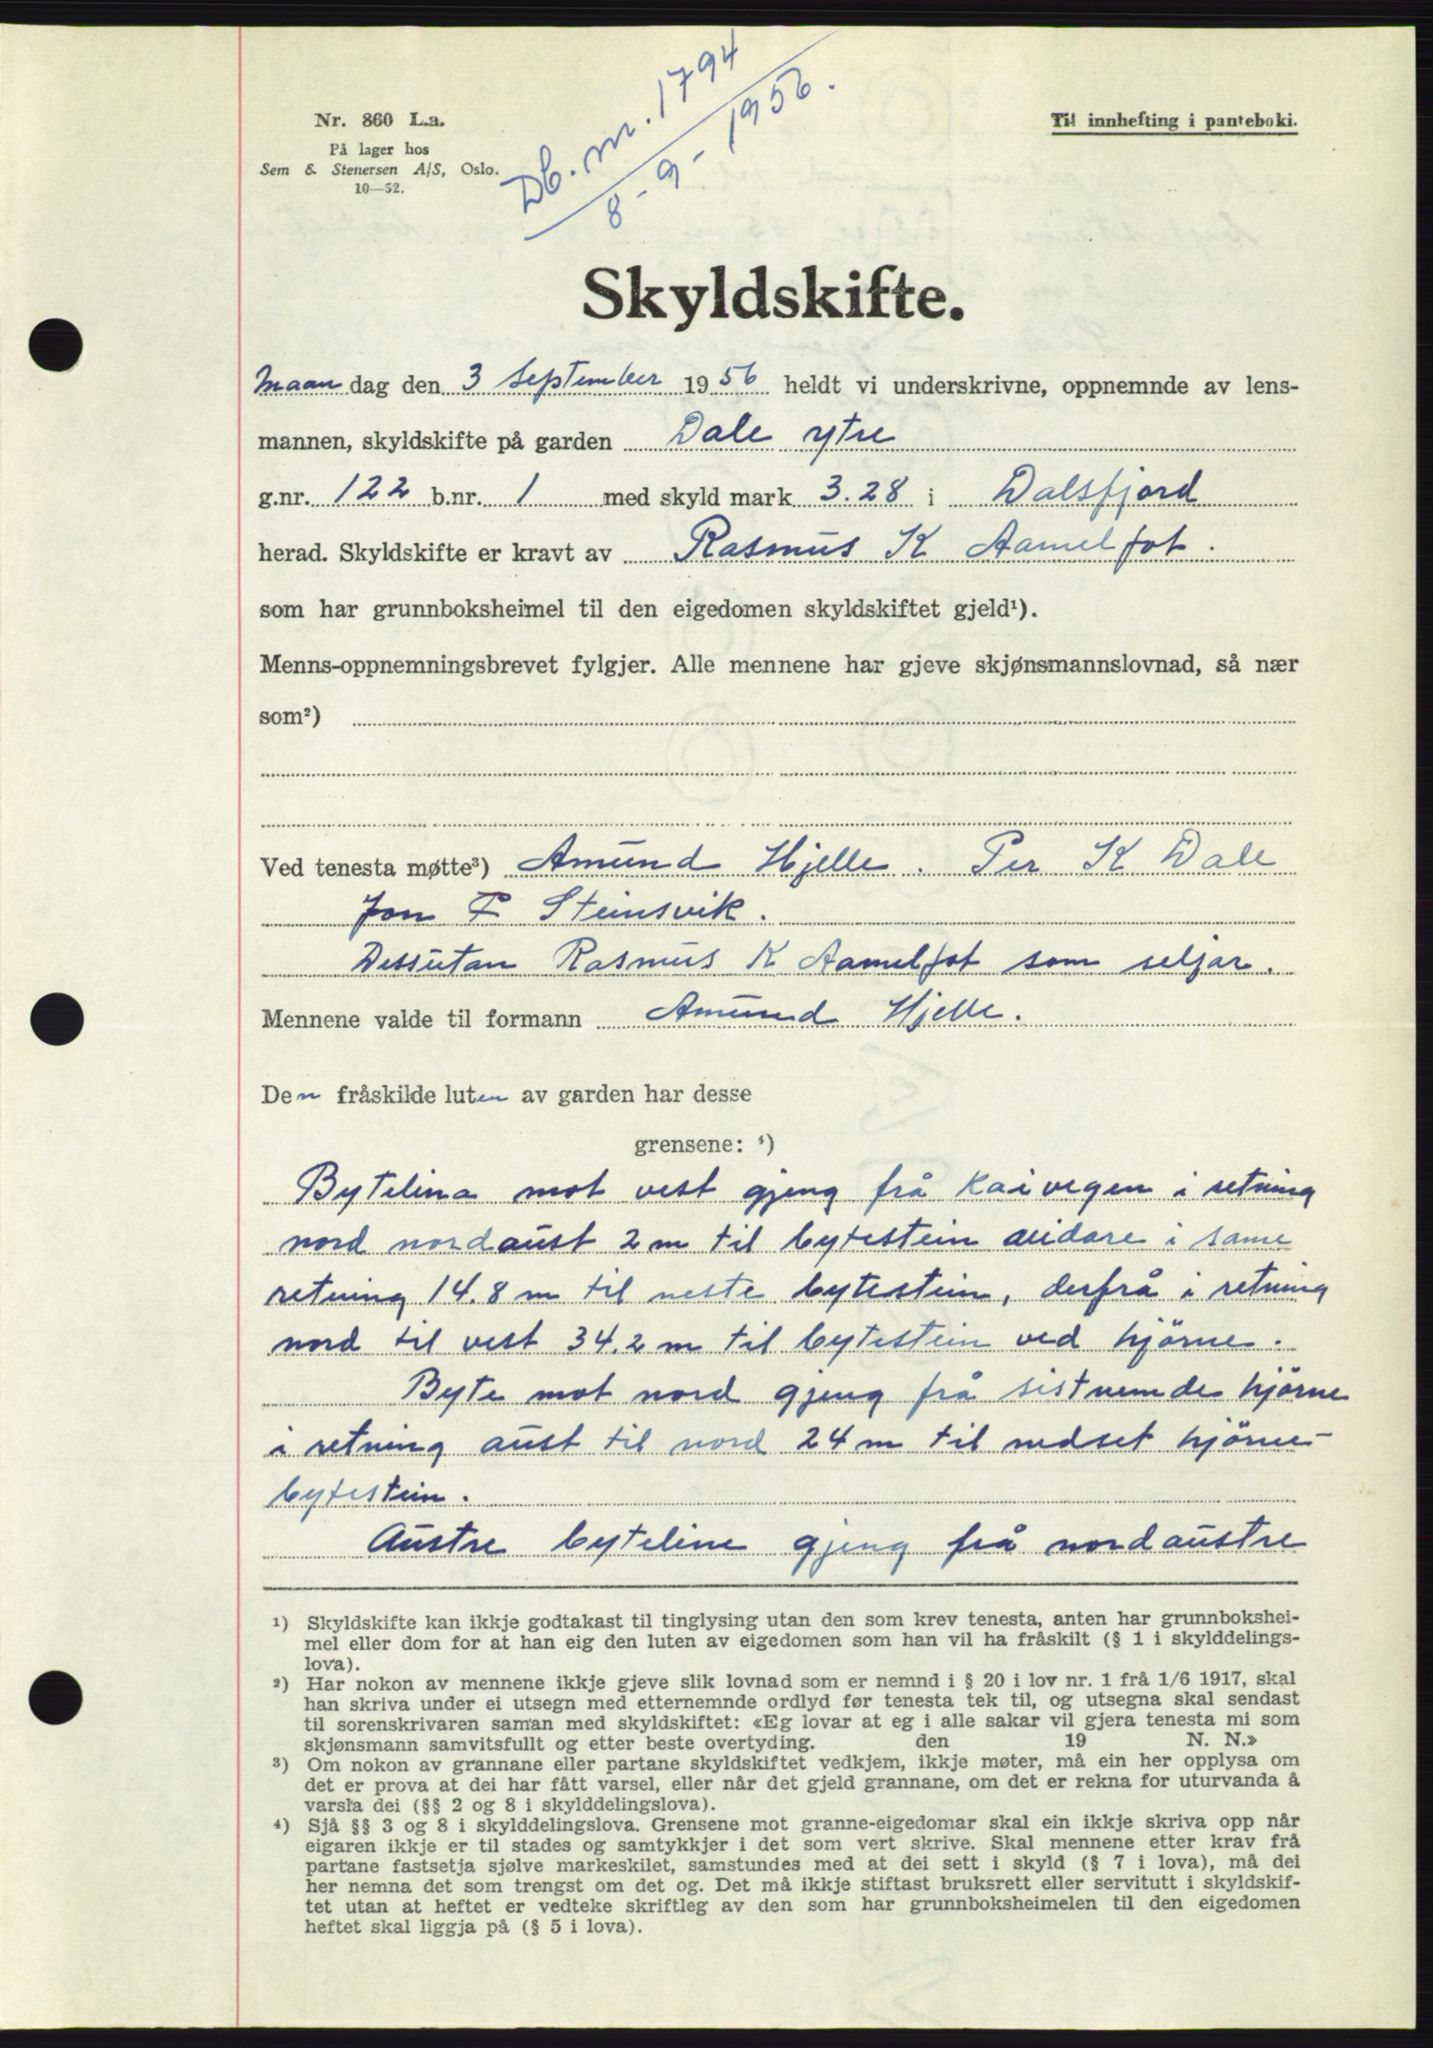 Nr. 860 L.a.
På lager hos
Sem & Stenersen A/S, Oslo.
10—52.
Db. nr. 1794
8-9-1956.
Til innhefting i panteboki.
Skyldskifte.
Maandag den 3 September 1956 heldt vi underskrivne, oppnemnde av lens-
mannen, skyldskifte på garden Dale ytre
g.nr. 122 b.nr. 1 med skyld mark 3.28 i Dalsfjord
herad. Skyldskifte er kravt av Rasmus K Aamelfot.
som har grunnboksheimel til den eigedomen skyldskiftet gjeld¹).
Menns-oppnemningsbrevet fylgjer. Alle mennene har gjeve skjønsmannslovnad, så nær
som²)
Ved tenesta møtte³) Amund Hjelle. Per K Dale
Jon F Steinsvik.
Dessutan Rasmus K Aamelfot som seljar.
Mennene valde til formann Amund Hjelle.
Den fråskilde luten av garden har desse
grensene: ⁴)
Bytelina mot vest gjeng frå kaivegen i retning
nord nordaust 2 m til bytestein vidare i same
retning 14.8 m til neste bytestein, derfrå i retning
nord til vest 34.2 m til bytestein ved hjörne.
Byte mot nord gjeng frå sistnemde hjörne
i retning aust til nord 24 m til nedset hjörne-
bytestein.
Austre byteline gjeng frå nordaustre
¹) Skyldskifte kan ikkje godtakast til tinglysing utan den som krev tenesta, anten har grunnbokshei-
mel eller dom for at han eig den luten av eigedomen som han vil ha fråskilt (§ 1 i skylddelings-
lova).
²) Har nokon av mennene ikkje gjeve slik lovnad som er nemnd i § 20 i lov nr. 1 frå 1/6 1917, skal
han skriva under ei utsegn med etternemnde ordlyd før tenesta tek til, og utsegna skal sendast
til sorenskrivaren saman med skyldskiftet: «Eg lovar at eg i alle sakar vil gjera tenesta mi som
skjønsmann samvitsfullt og etter beste overtyding. den 19 N. N.»
³) Om nokon av grannane eller partane skyldskiftet vedkjem, ikkje møter, må ein her opplysa om
det er prova at dei har fått varsel, eller når det gjeld grannane, om det er rekna for uturvanda å
varsla dei (§§ 2 og 8 i skylddelingslova).
⁴) Sjå §§ 3 og 8 i skylddelingslova. Grensene mot granne-eigedomar skal ein ikkje skriva opp når
eigaren ikkje er til stades og samtykkjer i det som vert skrive. Skal mennene etter krav frå
partane fastsetja sjølve markeskilet, samstundes med at dei sett i skyld (§ 7 i lova), må dei
her nemna det som trengst om det og. Det må ikkje stiftast bruksrett eller servitutt i skyldskif-
tet utan at heftet er vedteke skriftleg av den som har grunnboksheimelen til den eigedomen
heftet skal liggja på (§ 5 i lova).